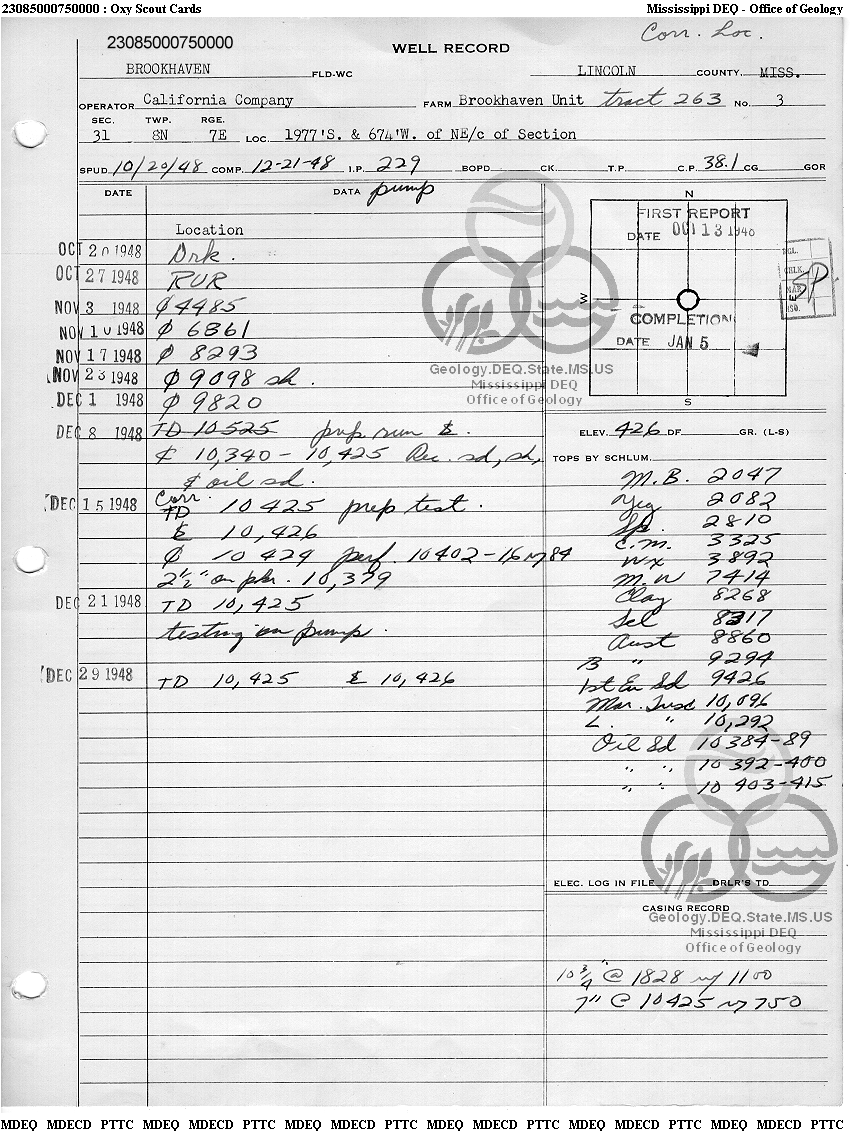 23085000750000 : Oxy Scout Cards Mississippi DEQ - Office of Geology
Corr. Loc.
23085000750000
WELL RECORD
BROOKHAVEN FLD-WC LINCOLN COUNTY, MISS.
OPERATOR California Company FARM Brookhaven Unit tract 263 No. 3
SEC. TWP. RGE.
31 8N 7E LOC. 1977'S. & 674'W. of NE/c of Section
SPUD 10/20/48 COMP. 12-21-48 I.P. 229 BOPD CK. T.P. C.P. 38.1 CG GOR
DATE DATA pump
Location
OCT 20 1948 Drk.
OCT 27 1948 RUR
NOV 3 1948 ₵ 4485
NOV 10 1948 ₵ 6861
NOV 17 1948 ₵ 8293
NOV 23 1948 ₵ 9098 sh.
DEC 1 1948 ₵ 9820
DEC 8 1948 TD 10525 prep run
₵ 10,340 - 10,425 Rec. sd, sh,
& oil sd.
DEC 15 1948 Corr. TD 10425 prep test.
10,426
₵ 10424 perf. 10402-16 w/84
2½" on pkr. 10,379
DEC 21 1948 TD 10,425
testing on pump.
DEC 29 1948 TD 10,425 10,426
N
FIRST REPORT
DATE OCT 13 1948
W
COMPLETION
DATE JAN 5
S
SP
Geology.DEQ.State.MS.US
Mississippi DEQ
Office of Geology
ELEV. 426 DF GR. (L-S)
TOPS BY SCHLUM.
M.B. 2047
Yeg 2082
Sp. 2810
C.M. 3325
Wx 3892
M.W 7414
Clay 8268
Sel 8317
Aust 8860
B " 9294
1st Eu Sd 9426
Mar. Tusc 10,096
L. " 10,292
Oil Sd 10384-89
" " 10392-400
" " 10403-415
ELEC. LOG IN FILE DRLR'S TD
CASING RECORD
Geology.DEQ.State.MS.US
Mississippi DEQ
Office of Geology
10 3/4" @ 1828 w/ 1100
7" @ 10425 w/ 750
MDEQ MDECD PTTC MDEQ MDECD PTTC MDEQ MDECD PTTC MDEQ MDECD PTTC MDEQ MDECD PTTC MDEQ MDECD PTTC